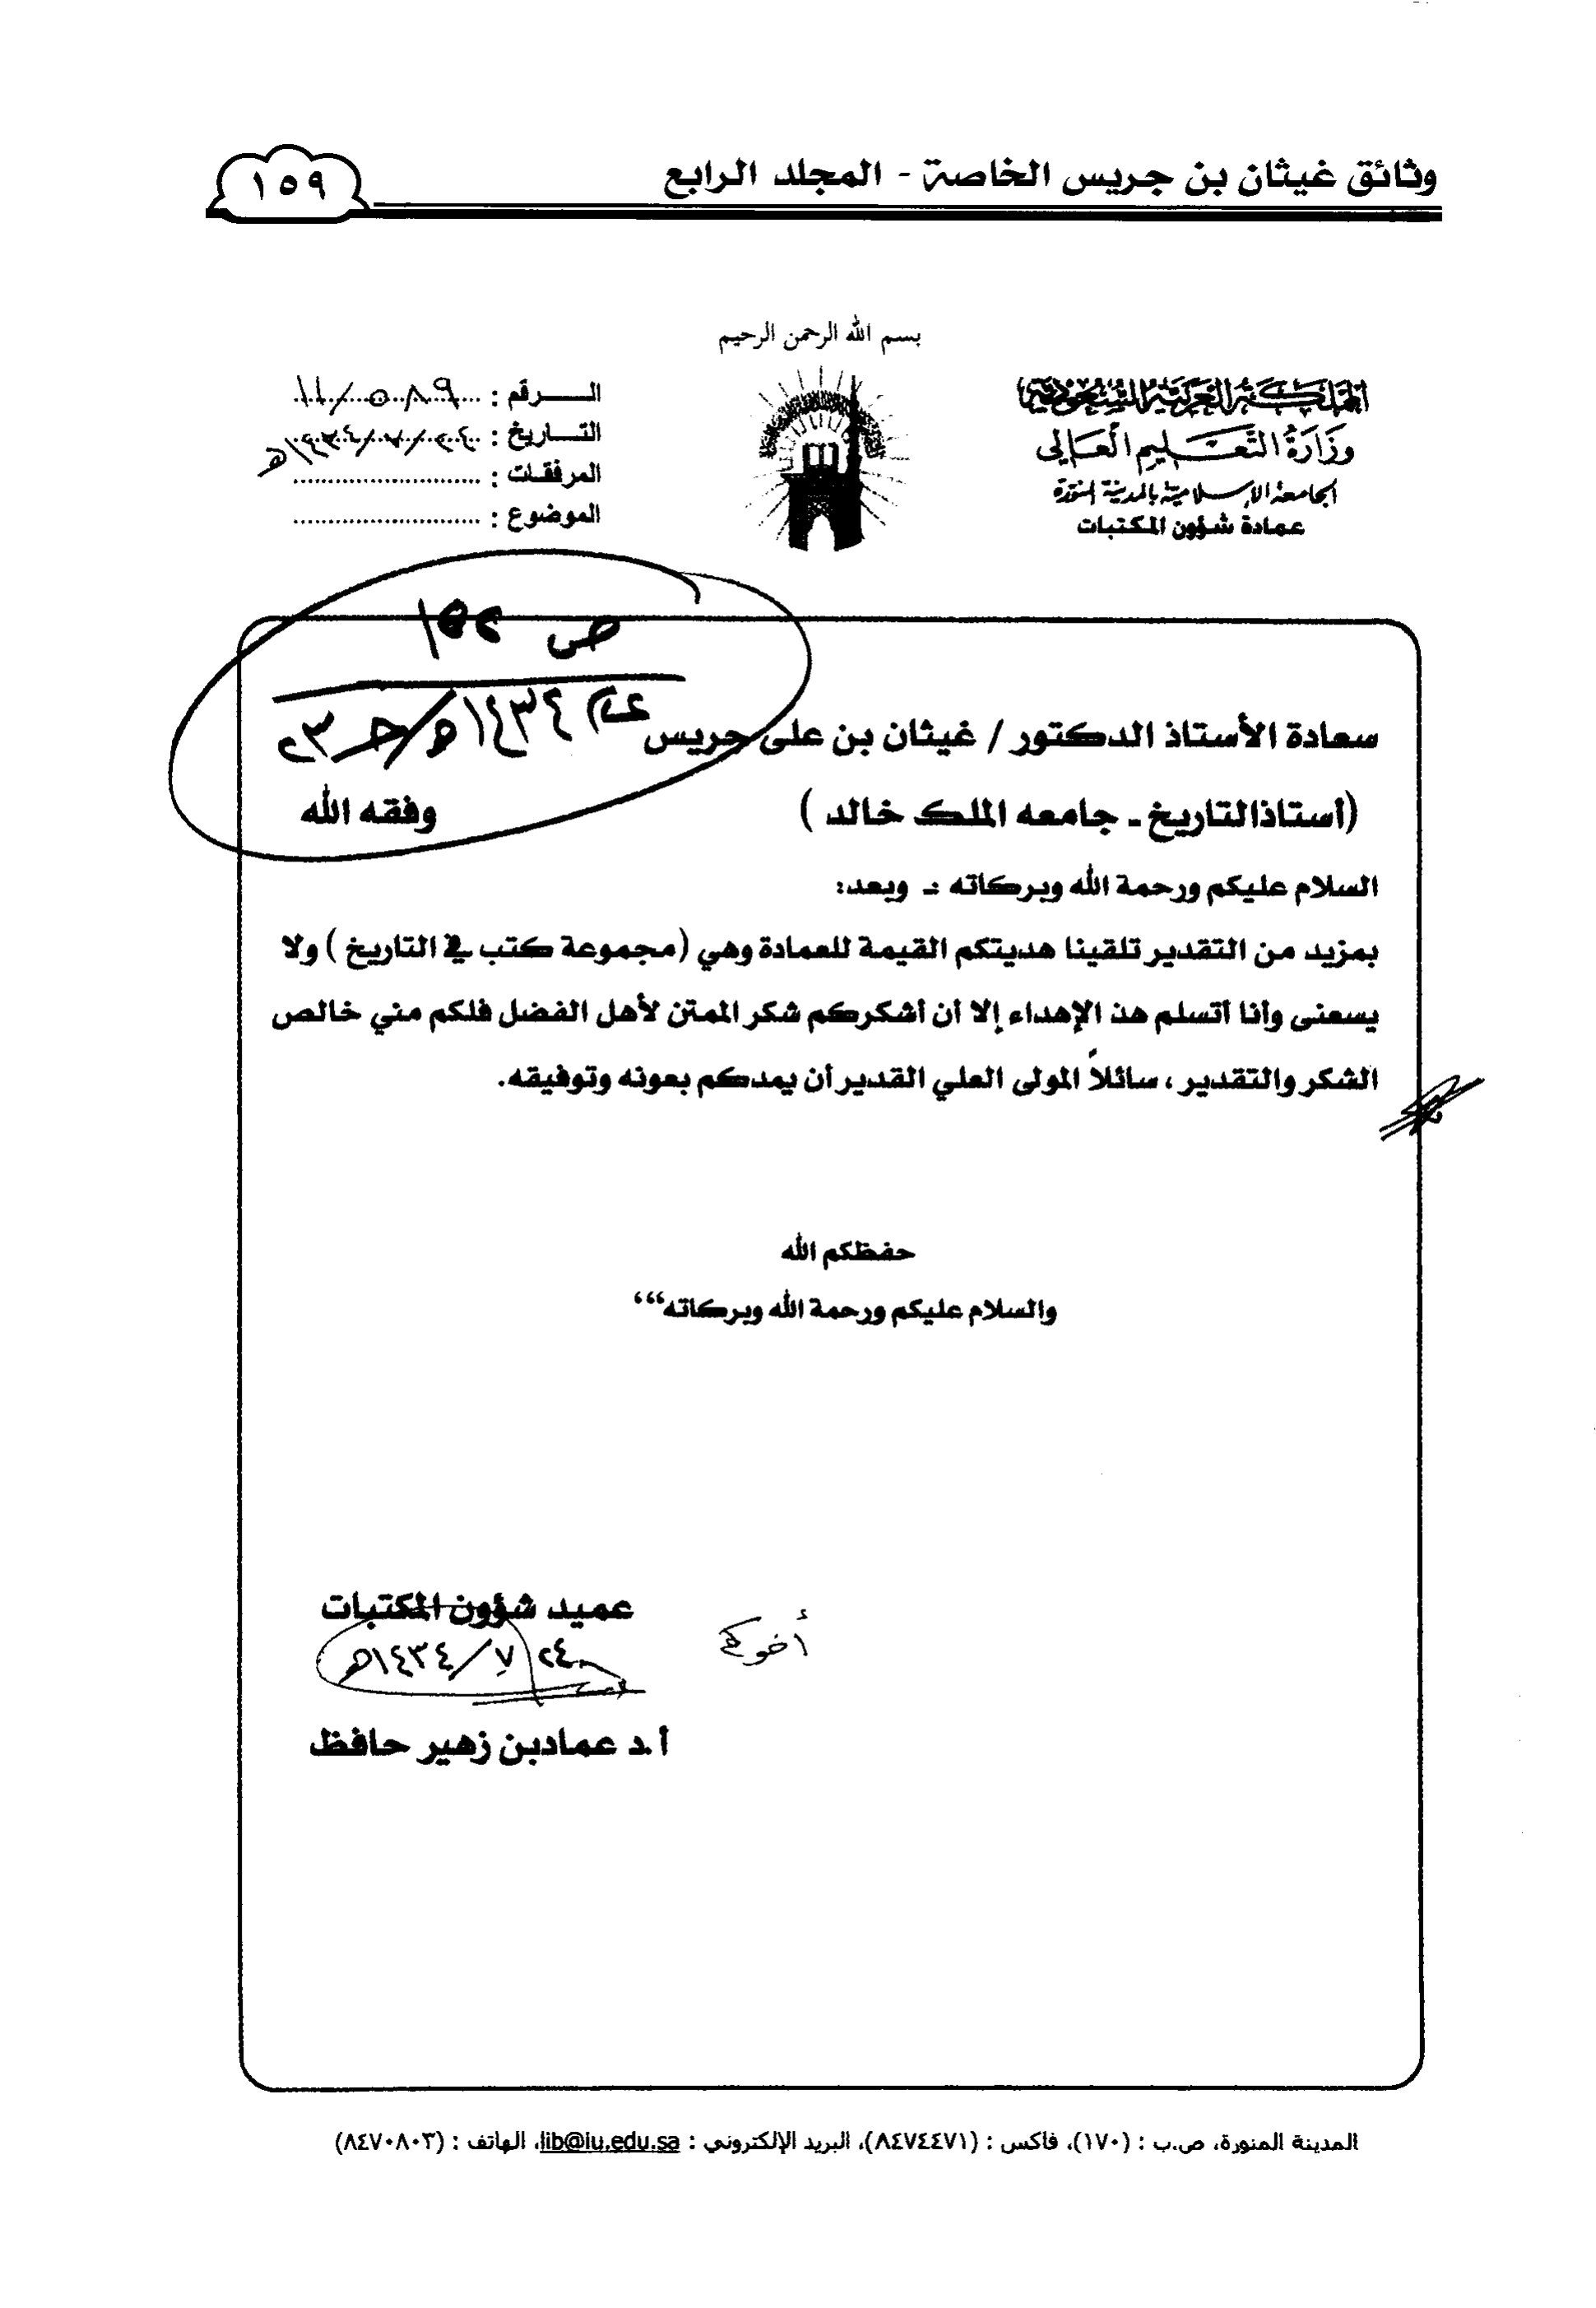 وثائق غيثان بن جريس الخاصة - المجلد الرابع
١٥٩
بسم الله الرحمن الرحيم
المملكة العربية السعودية
وزارة التعليم العالي
الجامعة الإسلامية بالمدينة المنورة
عمادة شؤون المكتبات
الـــرقم : ١١/٥٠٨٩
التـــاريخ : ٢٤/٠٧/١٤٣٤هـ
المرفقـات :
الموضوع :
ص
١٤٣٤هـ
سعادة الأستاذ الدكتور / غيثان بن على جريس
(أستاذالتاريخ ـ جامعه الملك خالد )
وفقه الله
السلام عليكم ورحمة الله وبركاته :ـ وبعد:
بمزيد من التقدير تلقينا هديتكم القيمة للعمادة وهي (مجموعة كتب في التاريخ ) ولا
يسعنى وأنا أتسلم هذ الإهداء إلا أن أشكركم شكر الممتن لأهل الفضل فلكم مني خالص
الشكر والتقدير ، سائلاً المولى العلي القدير أن يمدكم بعونه وتوفيقه.
حفظكم الله
والسلام عليكم ورحمة الله وبركاته،،،
عميد شؤون المكتبات
أخوكم
٢٤/٧/١٤٣٤هـ
أ.د عمادبن زهير حافظ
المدينة المنورة، ص.ب : (١٧٠)، فاكس : (٨٤٧٤٤٧١)، البريد الإلكتروني : lib@iu.edu.sa، الهاتف : (٨٤٧٠٨٠٣)